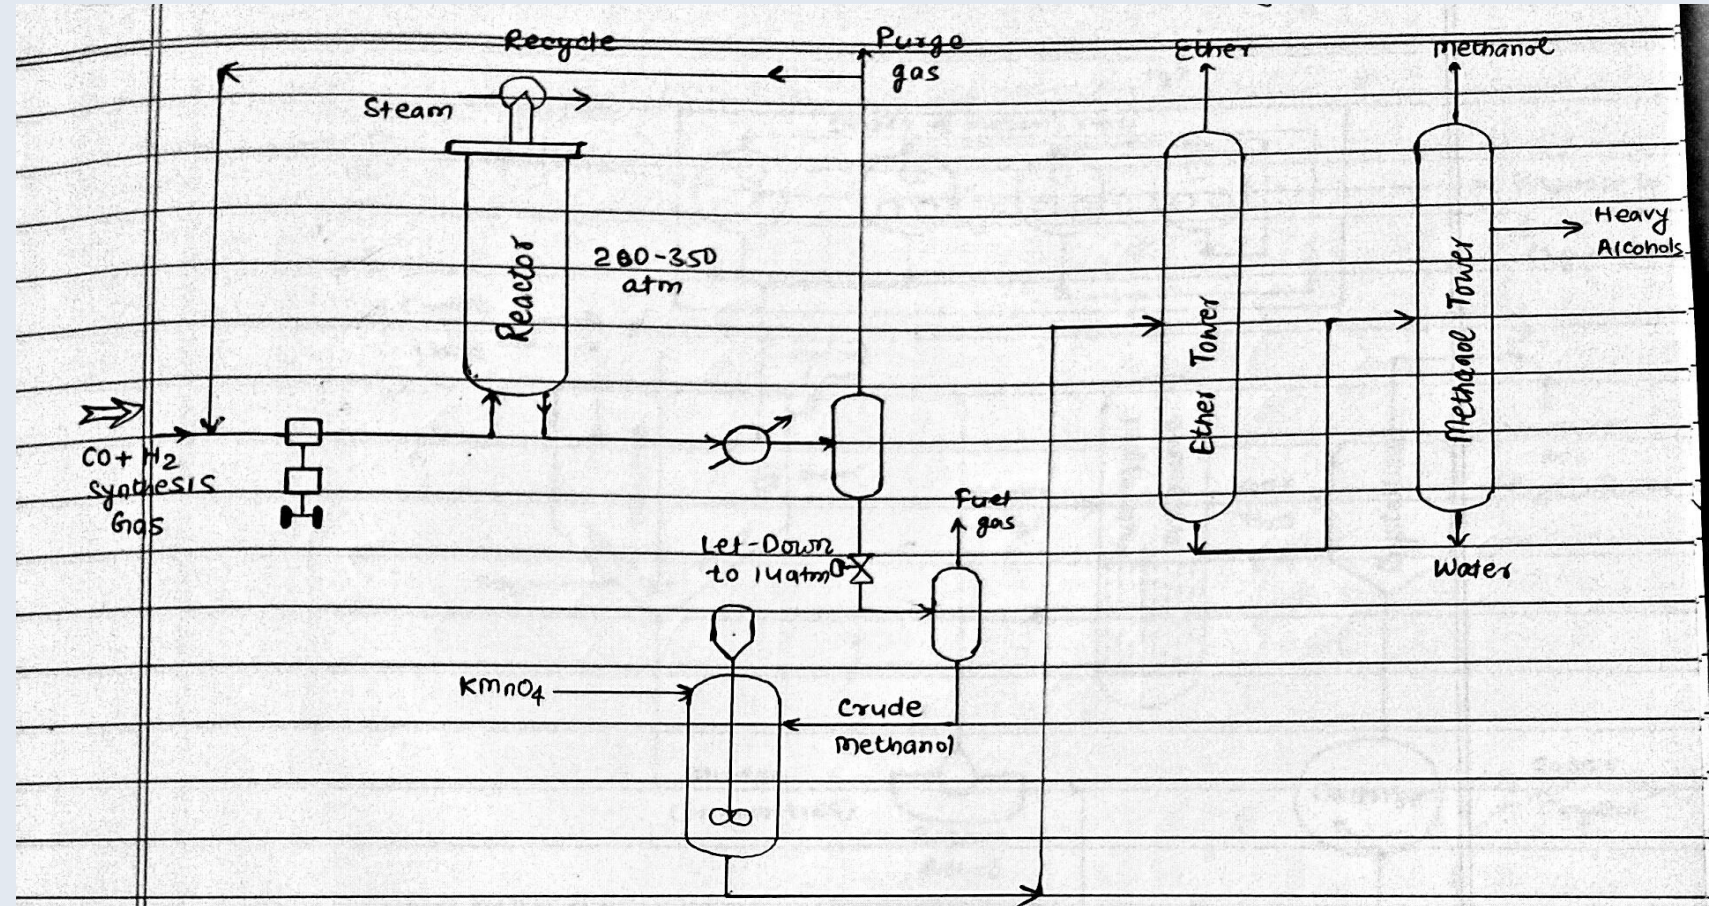 Recycle
Purge
gas
Ether
Methanol
Steam
Heavy
Alcohols
Reactor
200-350
atm
Ether Tower
Methanol Tower
CO+ H2
Synthesis
Gas
Fuel
gas
Let-Down
to 14atm
Water
KMnO4
Crude
Methanol